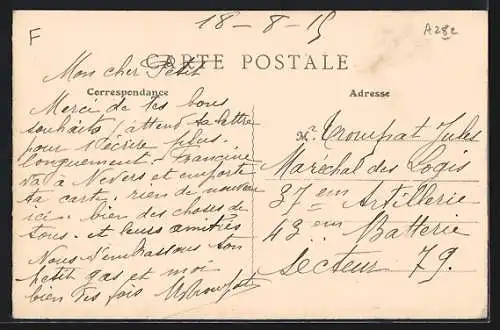 F
18 - 8 - 15
A28c
CARTE POSTALE
Mon cher Petit
Correspondance
Merci de tes bons
souhaits j'attend ta lettre
pour t'écrire plus
longuement - Francine
va à Nevers et emporte
ta carte. rien de nouveau
ici - bien des choses de
tous - et leurs amitiés
Nous t'embrassons ton
petit gas et moi
bien des fois
Adresse
Mr Trompat Jules
Maréchal des Logis
37 em Artillerie
43 em Batterie
Secteur 79.